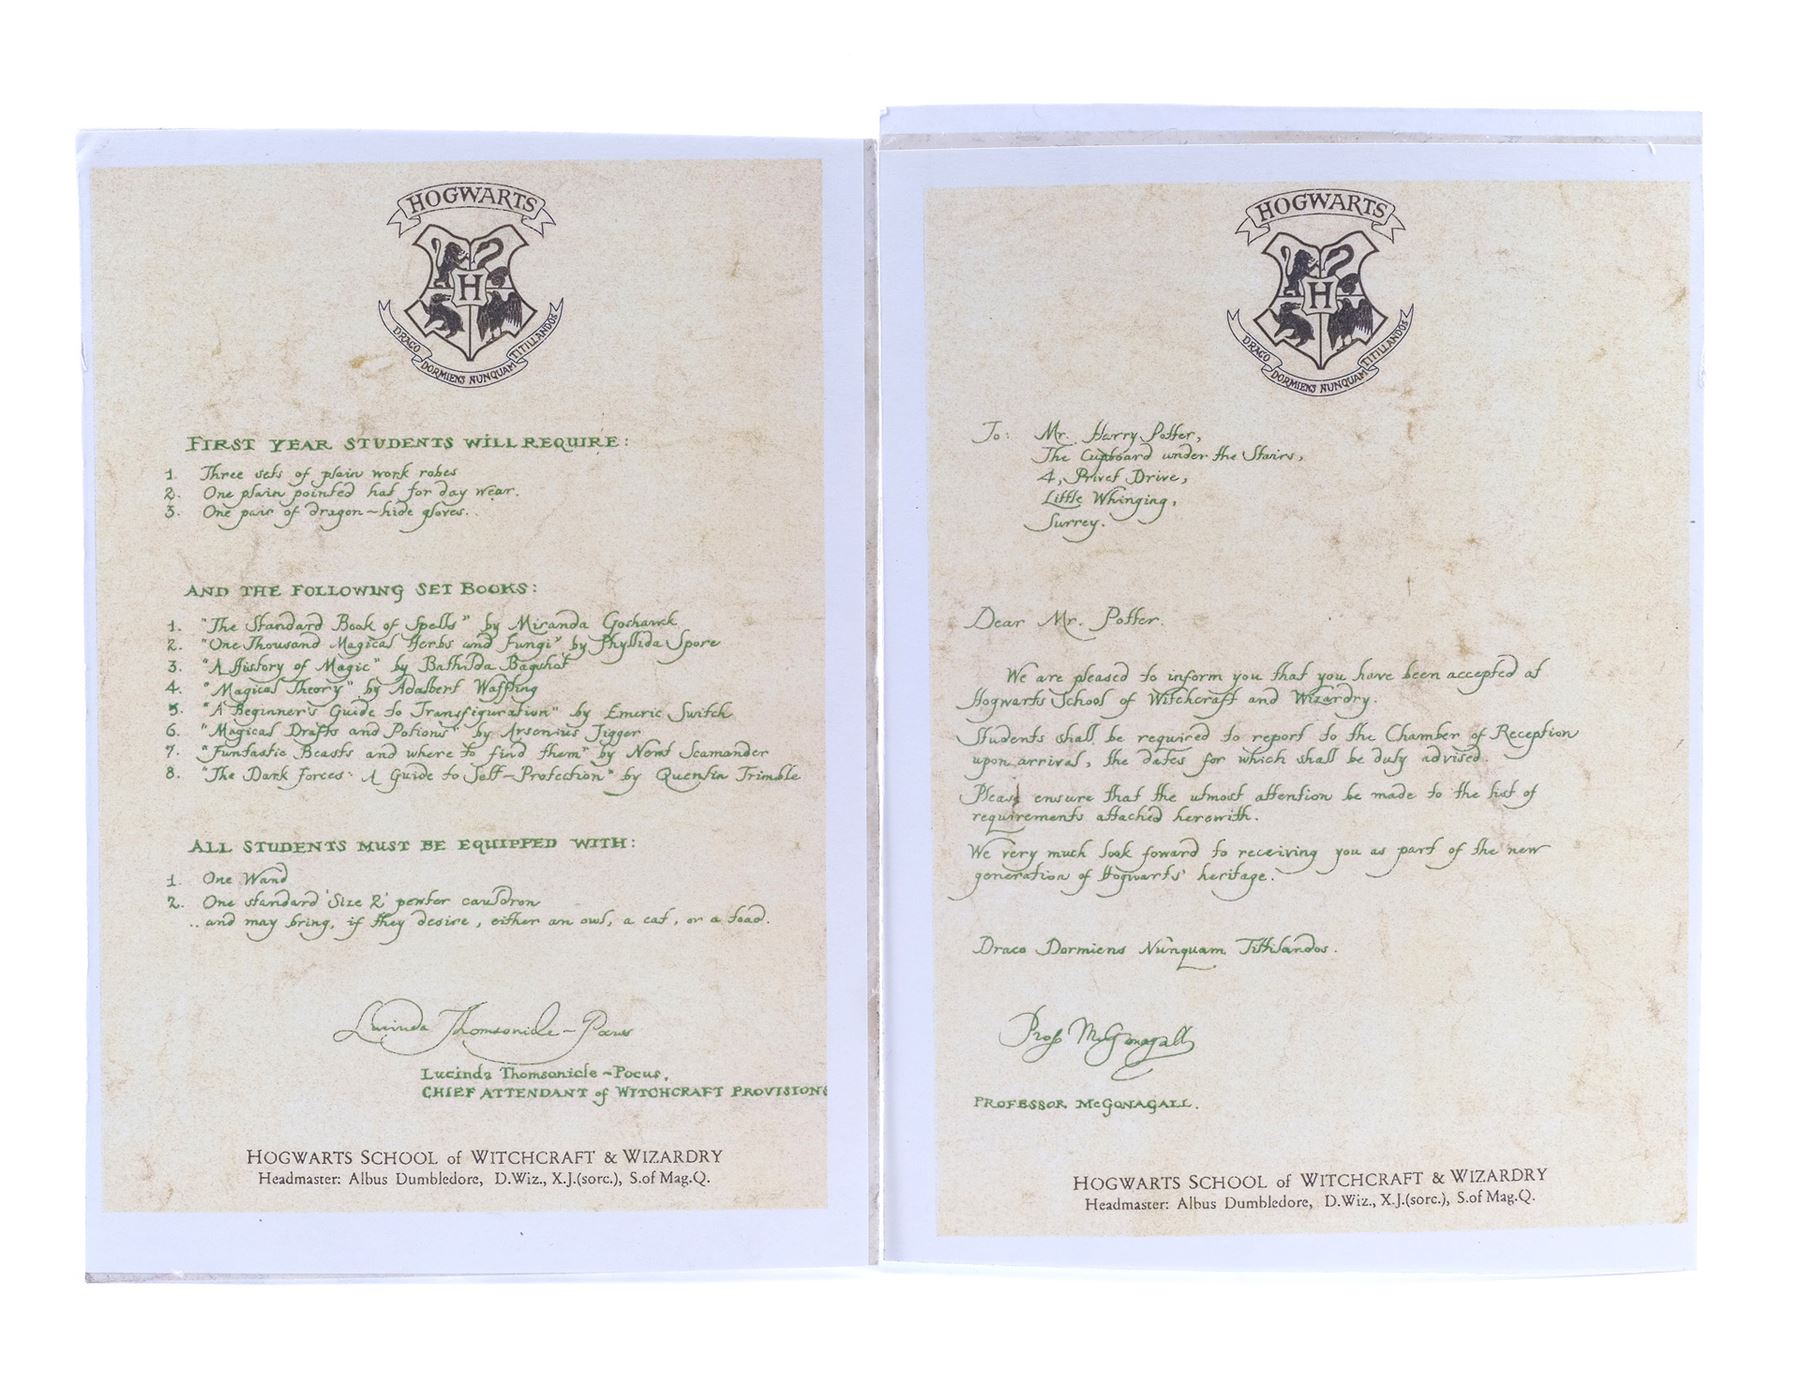 HOGWARTS
H
DRACO DORMIENS NUNQUAM TITILLANDUS
FIRST YEAR STUDENTS WILL REQUIRE:
1. Three sets of plain work robes
2. One plain pointed hat for day wear.
3. One pair of dragon-hide gloves..
AND THE FOLLOWING SET BOOKS:
1. "The Standard Book of Spells" by Miranda Goshawk
2. "One Thousand Magical Herbs and Fungi" by Phyllida Spore
3. "A History of Magic" by Bathilda Bagshot
4. "Magical Theory" by Adalbert Waffling
5. "A Beginner's Guide to Transfiguration" by Emeric Switch
6. "Magical Drafts and Potions" by Arsenius Jigger
7. "Fantastic Beasts and where to find them" by Newt Scamander
8. "The Dark Forces: A Guide to Self-Protection" by Quentin Trimble
ALL STUDENTS MUST BE EQUIPPED WITH:
1. One Wand
2. One standard 'Size 2' pewter cauldron
.. and may bring, if they desire, either an owl, a cat, or a toad.
Lucinda Thomsonicle-Pocus
Lucinda Thomsonicle-Pocus,
CHIEF ATTENDANT of WITCHCRAFT PROVISIONS
HOGWARTS SCHOOL of WITCHCRAFT & WIZARDRY
Headmaster: Albus Dumbledore, D.Wiz., X.J.(sorc.), S.of Mag.Q.
HOGWARTS
H
DRACO DORMIENS NUNQUAM TITILLANDUS
To: Mr. Harry Potter,
The Cupboard under the Stairs,
4, Privet Drive,
Little Whinging,
Surrey.
Dear Mr. Potter.
We are pleased to inform you that you have been accepted at
Hogwarts School of Witchcraft and Wizardry.
Students shall be required to report to the Chamber of Reception
upon arrival, the dates for which shall be duly advised.
Please ensure that the utmost attention be made to the list of
requirements attached herewith.
We very much look foward to receiving you as part of the new
generation of Hogwarts' heritage.
Draco Dormiens Nunquam Titillandos.
Prof McGonagall
PROFESSOR McGONAGALL.
HOGWARTS SCHOOL of WITCHCRAFT & WIZARDRY
Headmaster: Albus Dumbledore, D.Wiz., X.J.(sorc.), S.of Mag.Q.